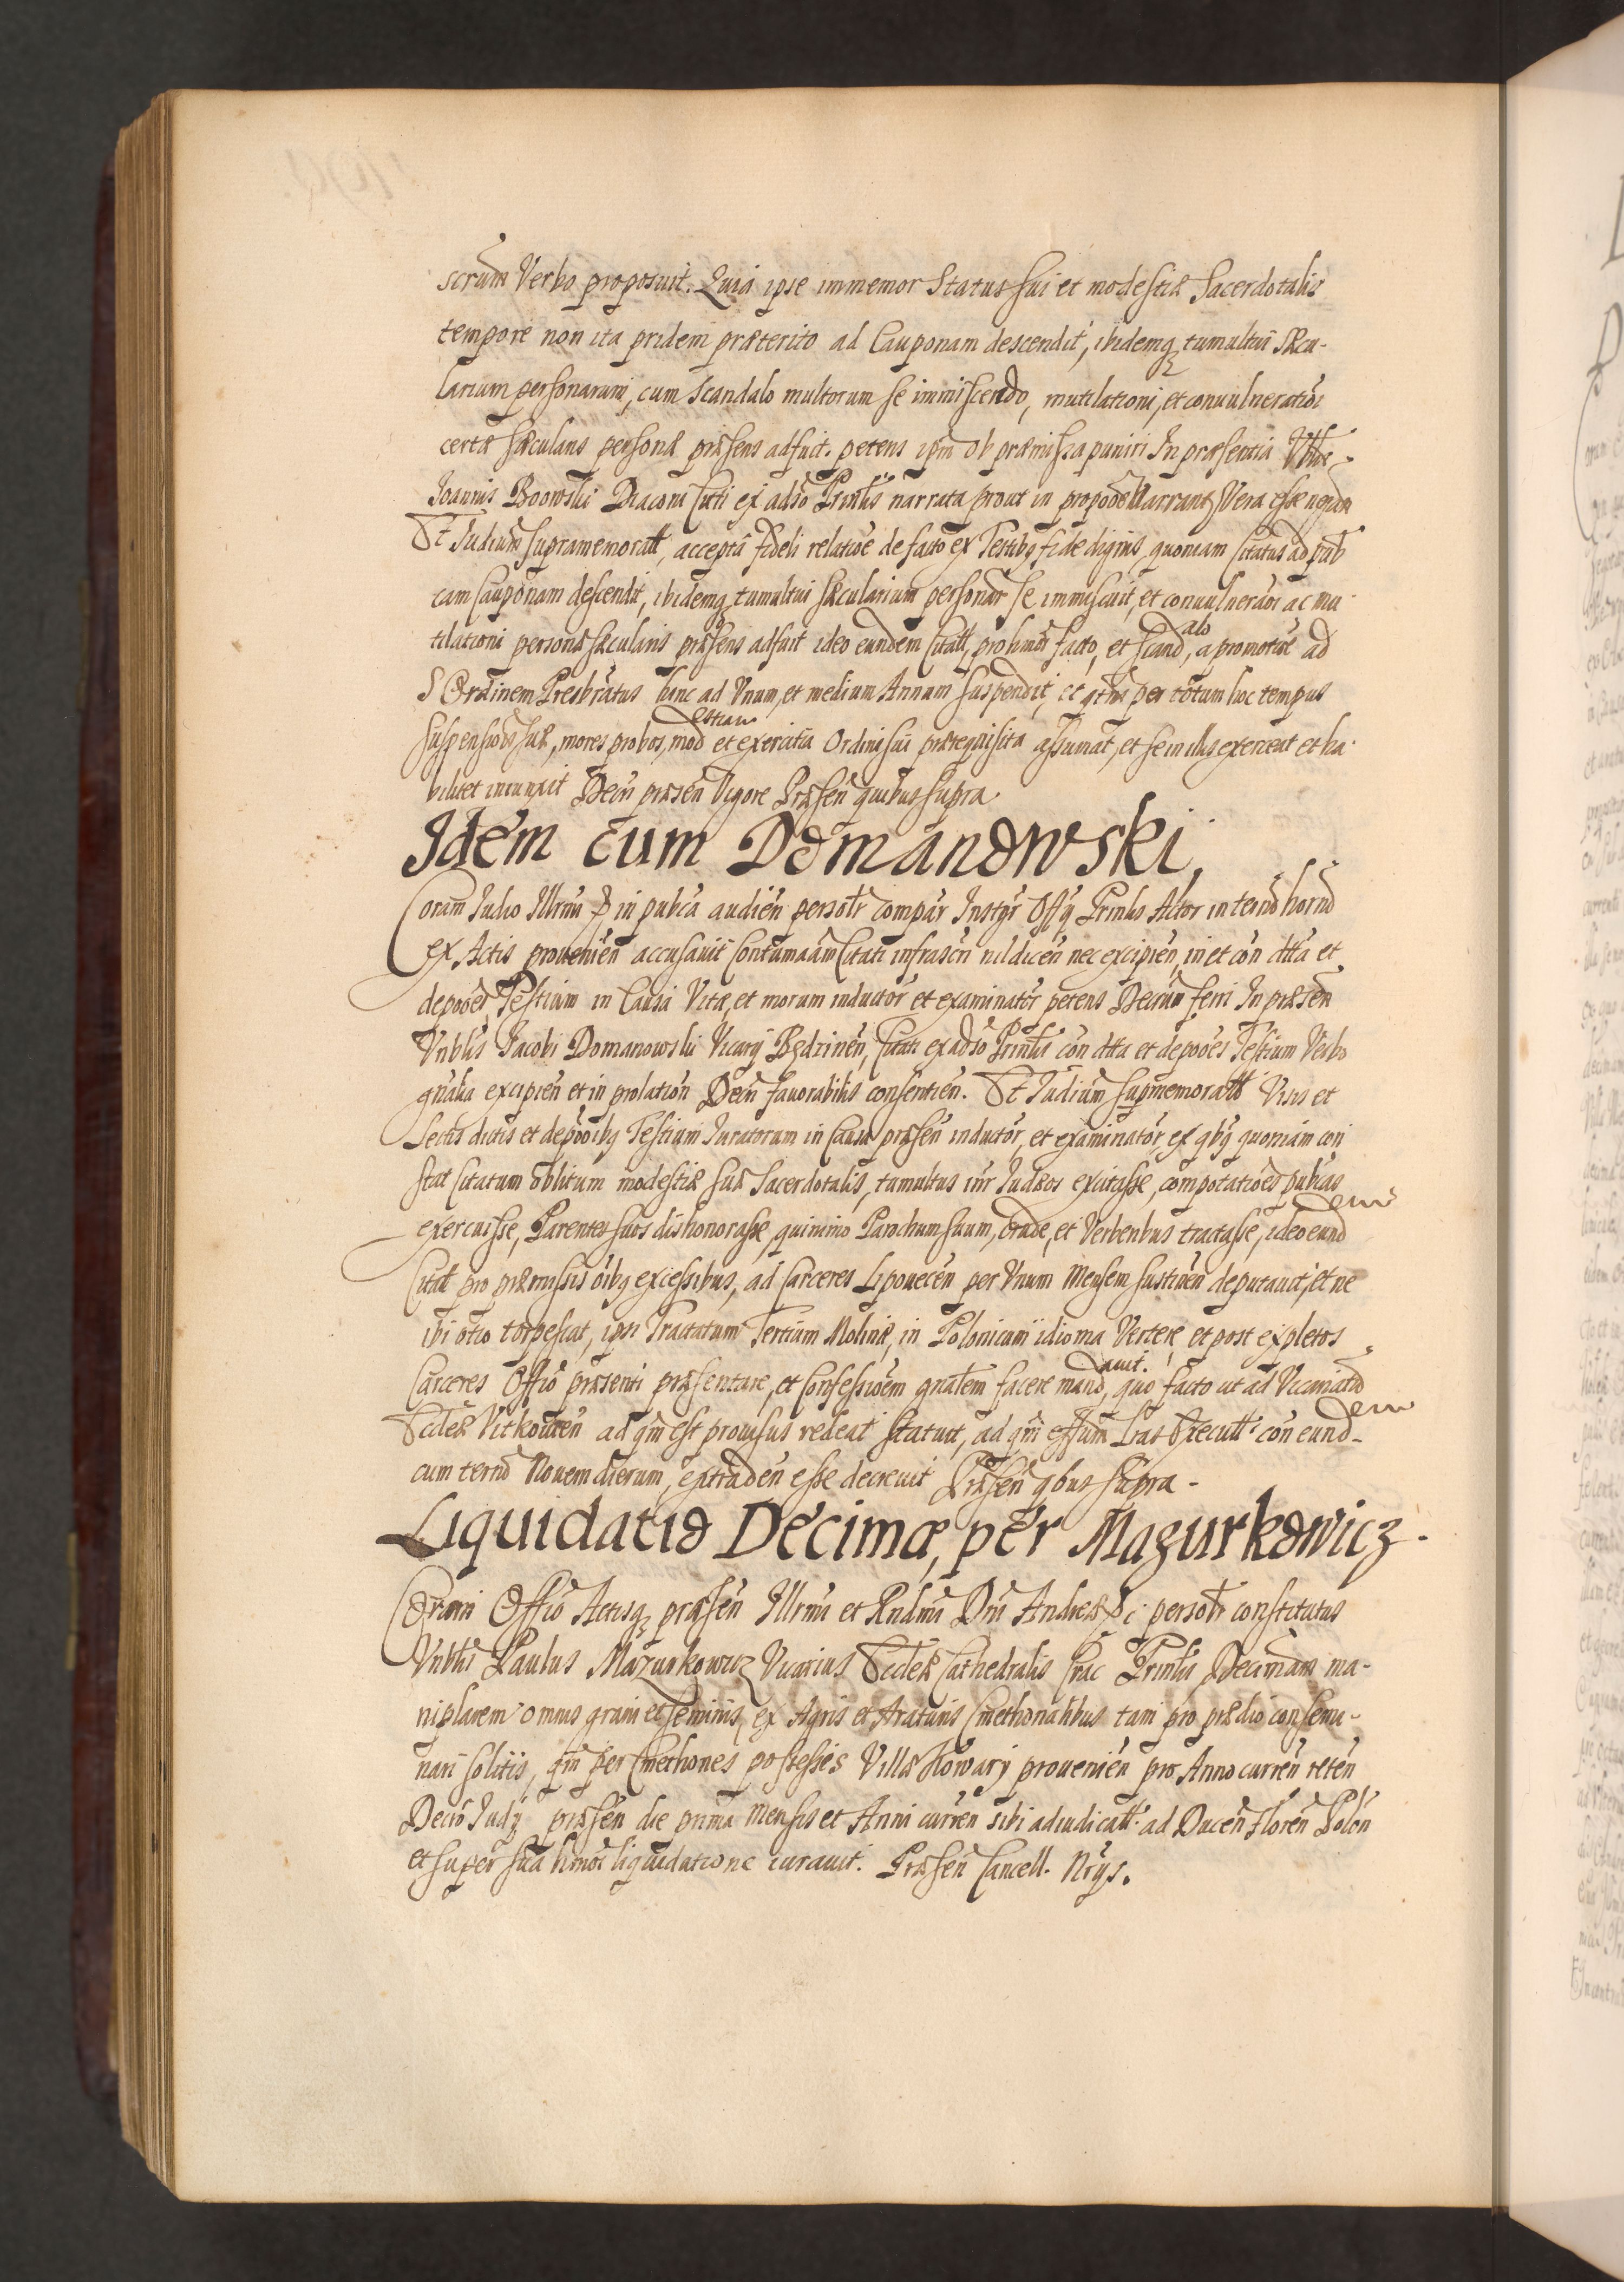 scrum Verbo proposuit. Quia ipse immemor Status sui et modestiæ Sacerdotalis
tempore non ita pridem præterito ad Cauponam descendit, ibidemq tumultui Sæcu-
larium personarum, cum scandalo multorum se immiscendo, mutilationi, et conuulneratioi
certæ sæcularis personæ præsens adfuit. petens ipm ob præmissa puniri In præsentia
Joannis Diaconi Citti ex adso Prinlis narrata prout in propooe Narrantz Vera esse negan
Et Judium supramemoratt, accepta fideli relatioe de facto ex Testibq fide dignis, quoniam Citatus ad pub
cam Cauponam descendit, ibidemq tumultui sæcularium personar se immiscuit, et conuulneraoi ac mu-
tilationi personæ sæcularis præsens adfuit ideo eundem Citatt, pro hmoi facto, et scandalo, a promotioe ad
S Ordinem Presbratus hinc ad Vnum, et medium Annum suspendit, et qtnus per totum hoc tempus
suspensiois suæ, mores probos, modestiam et exercitia Ordini sui prærequisita assumat, et se in illis exerceat et ha-
bilitet iniunxit Decri præsen Vigore Præsen quibus supra
Idem cum Domanowski,
Coram Judio Illrmi P in pubca audien persolr compar Instgr Offy Prinlis Actor in termo horno
ex Actis prouenien accusauit Contumaciam Citati infrascri nil dicen nec excipien, in et con dtta et
depooes Testium in Causa Vitæ, et morum inductor et examinator petens Decrum ferri In præsen
Vnblis Jacobi Domanowski Vicary Będzinen, Citati ex adso Prinlis con dtta et depooes Testium Verbo
gnalia excipien et in prolation Decri fauorabilis consentien. Et Judium supmemoratt Visis et
Lectis dictis et depooibq Testium Juratorum in Causa præsen inductor, et examinator, ex qbq quoniam con
stat Citatum oblitum modestiæ suæ Sacerdotalis, tumultus intr Judæos excitasse, compotatioes publcas
exercuisse, Parentes suos dishonorasse, quinimo Parochum suum, crude, et Verberibus tractasse, ideo eundem
Citatt pro præmissis oibq excessibus, ad Carceres Lipouecen per Vnum Mensem sustinen deputauit, et ne
ibi otio torpescat, ipsi Tractatum Tertium Molinæ, in Polonicum idioma Vertere et post expletos
Carceres Offio præsenti præsentare, et Confessioem gnalem facere mandauit. quo facto ut ad Vicariatu
Ecclæ Vitkowien ad qm est prouisus redeat statuit, ad qm effum Lras Executt con eundem
cum termo Nouem dierum, extraden esse decreuit Præsen qbus supra -
Liquidatio Decimæ, per Mazurkowicz.
Coram Offio Actisq præsen Illrmi et Rndmi Dni Andreæ persolr constitutus
Vnblis Paulus Mazurkowicz Vicarius Ecclæ Cathedralis Crac Prinlis Decimam ma-
niplarem omnis grani et seminis, ex Agris et Araturis Cmethonalibus tam pro prædio consemi-
nari solitis, qm per Cmethones possessis Villæ Kowary prouenien pro Anno curren reten
Decro Judy præsen die prima Mensis et Anni curren sibi adiudicatt ad Ducen Floren Polon
et super sua hmoi liquidatione iurauit. Præsen Cancell. Nrys.